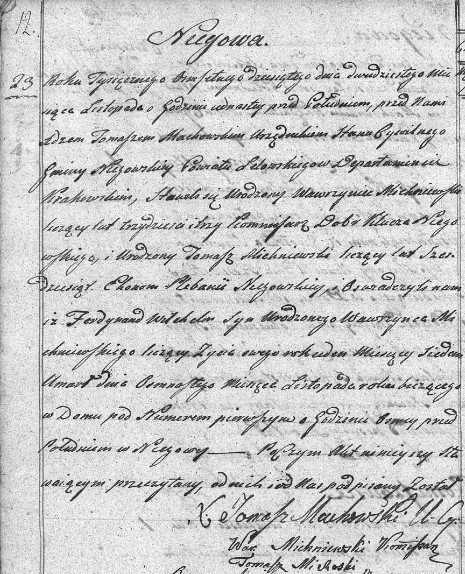 12.
Niegowa.
23
Roku Tysięcznego Osmsetnego dziesiątego dnia dwudziestego Mie
siąca Listopada o Godzinie iedenasty przed Południem, przed Nami
Xdzem Tomaszem Machowskim Urzędnikiem Stanu Cywilnego
Gminy Niegowski Powiatu Lelowskiego w Departamencie
Krakowskim, Stawili się Urodzony Wawrzyniec Michniewski
liczący lat trzydzieści i trzy Kommissarz Dobr Klucza Niego
wskiego, i Urodzony Tomasz Michniewski liczący lat Szes
dziesiąt. Ekonom Plebanii Niegowskiey, i Oswiadczyli nam
iż Ferdynand Wilchelm Syn Urodzonego Wawrzynca Mi
chniewskiego liczący Zycia swego rok ieden Miesięcy Siedem
Umarł dnia Osmnastego Miesiąca Listopada roku bieżącego
w Domu pod Numerem pierwszym o Godzinie Osmy przed
Południem w Niegowy — Poczym Akt ninieyszy Sta
waiącym przeczytany, od nich i od Nas podpisany Został
X Tomasz Machowski U. C.
Waw. Michniewski Komissarz
Tomasz